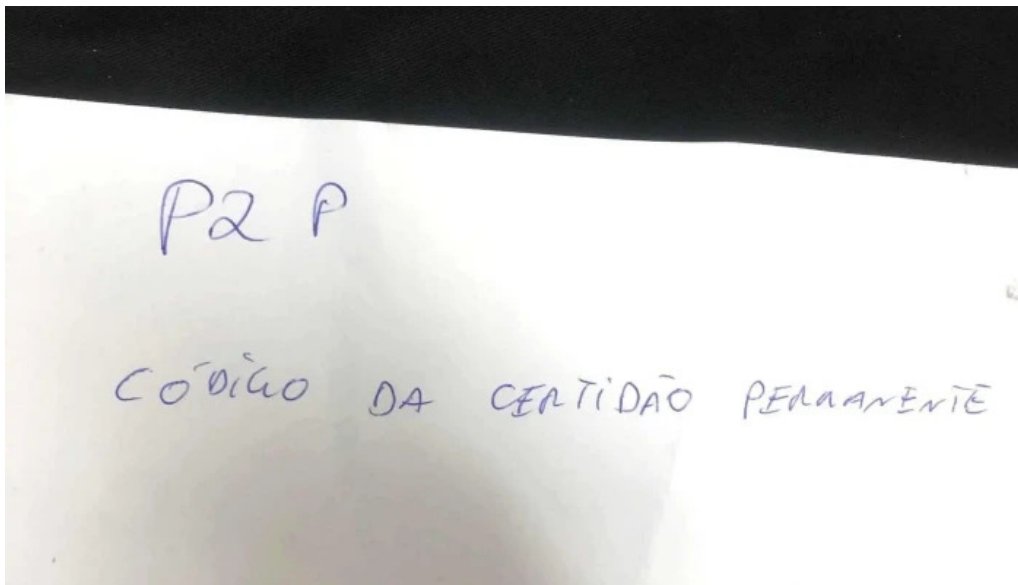 P2 P
CÓDIGO DA CERTIDÃO PERMANENTE